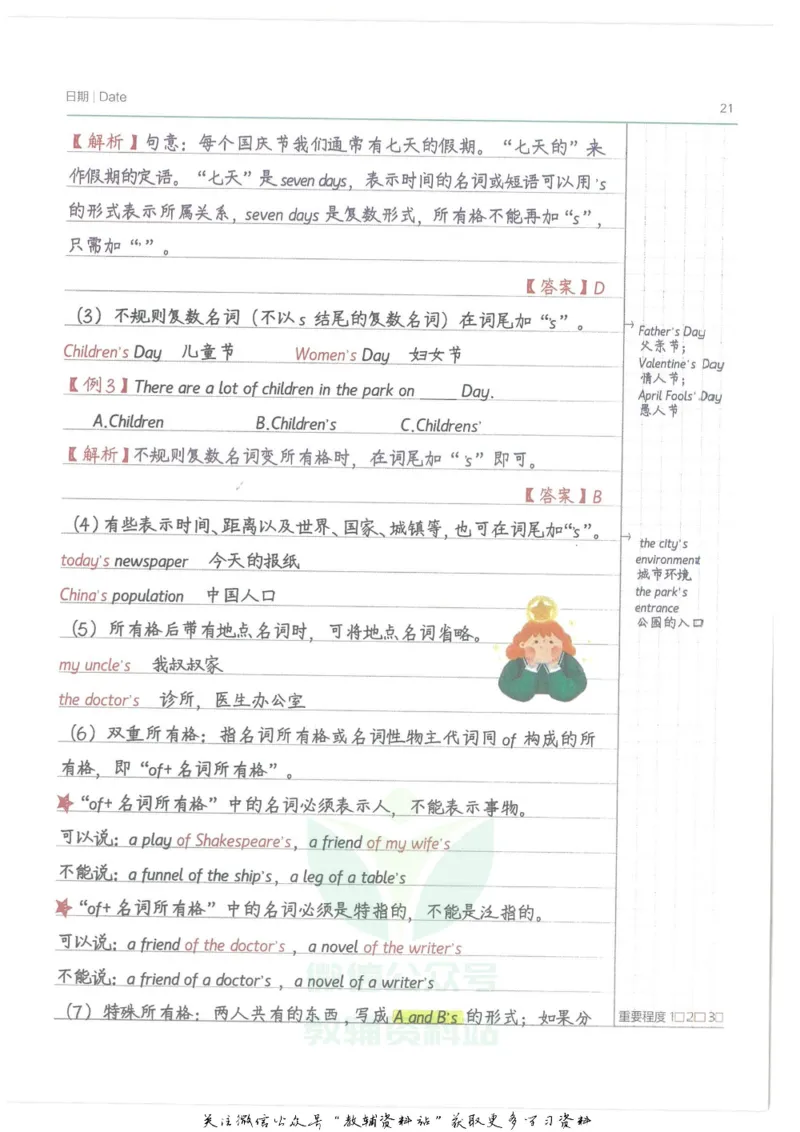 日期 | Date
21
【解析】句意：每个国庆节我们通常有七天的假期。“七天的”来
作假期的定语。“七天”是 seven days，表示时间的名词或短语可以用 's
的形式表示所属关系，seven days 是复数形式，所有格不能再加“s”，
只需加“'”。
【答案】D
(3) 不规则复数名词（不以 s 结尾的复数名词）在词尾加“'s”。
Children's Day 儿童节 Women's Day 妇女节
【例3】There are a lot of children in the park on ____ Day.
A.Children B.Children's C.Childrens'
【解析】不规则复数名词变所有格时，在词尾加“'s”即可。
【答案】B
(4) 有些表示时间、距离以及世界、国家、城镇等，也可在词尾加“'s”。
today's newspaper 今天的报纸
China's population 中国人口
(5) 所有格后带有地点名词时，可将地点名词省略。
my uncle's 我叔叔家
the doctor's 诊所，医生办公室
(6) 双重所有格：指名词所有格或名词性物主代词同 of 构成的所
有格，即“of+ 名词所有格”。
“of+ 名词所有格”中的名词必须表示人，不能表示事物。
可以说：a play of Shakespeare's，a friend of my wife's
不能说：a funnel of the ship's，a leg of a table's
“of+ 名词所有格”中的名词必须是特指的，不能是泛指的。
可以说：a friend of the doctor's，a novel of the writer's
不能说：a friend of a doctor's，a novel of a writer's
(7) 特殊所有格：两人共有的东西，写成 A and B's 的形式；如果分
Father's Day
父亲节；
Valentine's Day
情人节；
April Fools' Day
愚人节
the city's
environment
城市环境
the park's
entrance
公园的入口
重要程度 1□ 2□ 3□
微信公众号
教辅资料站
关注微信公众号“教辅资料站”获取更多学习资料